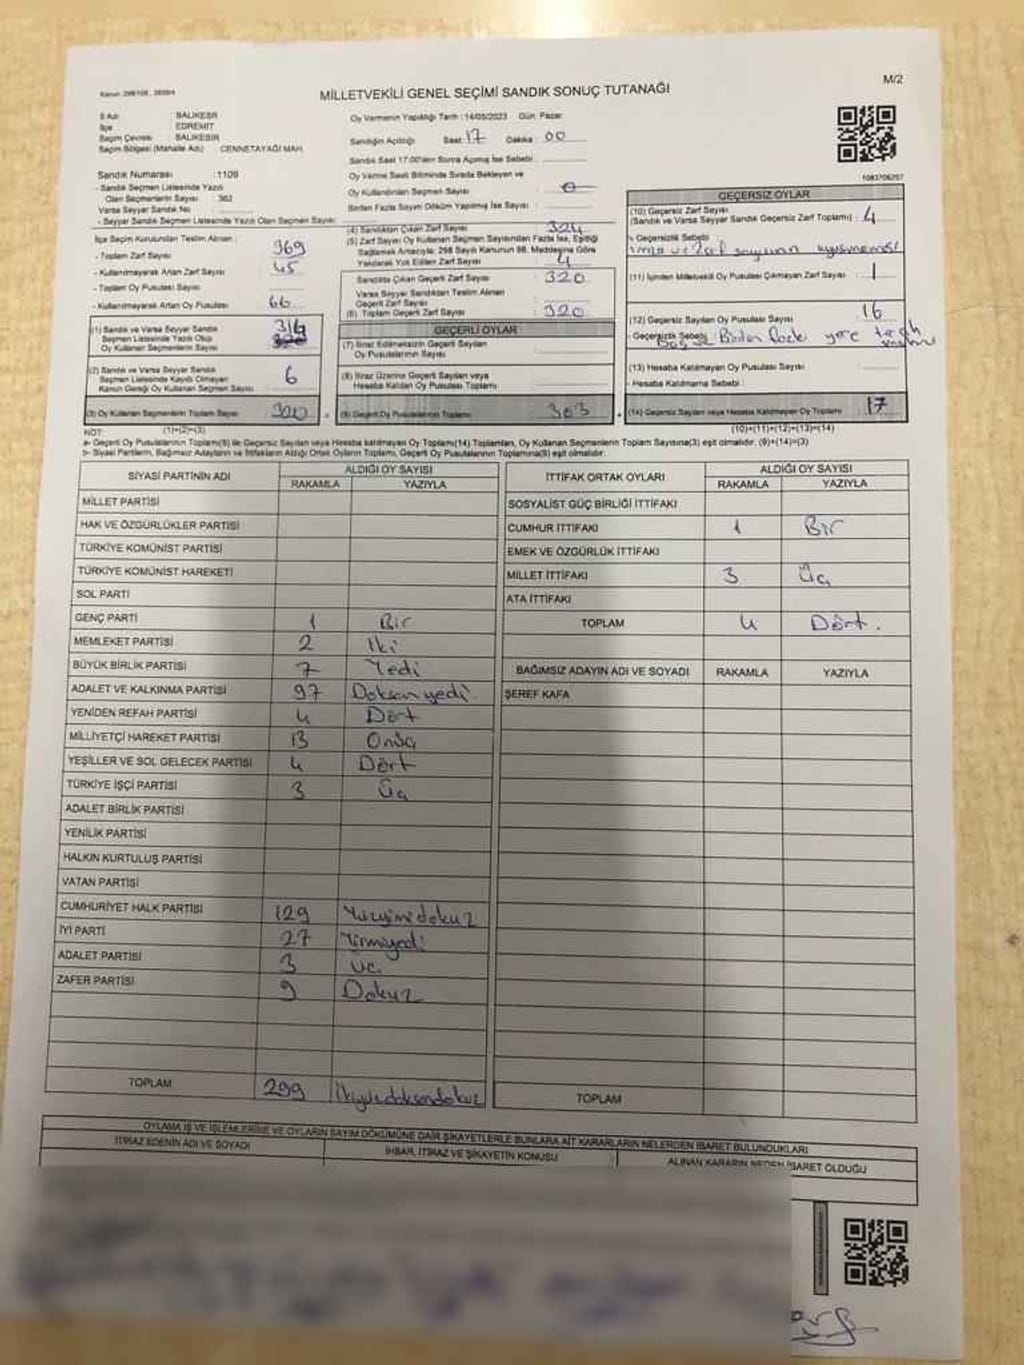 M/2
MİLLETVEKİLİ GENEL SEÇİMİ SANDIK SONUÇ TUTANAĞI
İl Adı : BALIKESİR
İlçe : EDREMİT
Seçim Çevresi : BALIKESİR
Seçim Bölgesi (Mahalle Adı) : CENNETAYAĞI MAH.
Sandık Numarası : 1109
- Sandık Seçmen Listesinde Yazılı
Olan Seçmenlerin Sayısı : 362
Varsa Seyyar Sandık No
- Seyyar Sandık Seçmen Listesinde Yazılı Olan Seçmen Sayısı:
İlçe Seçim Kurulundan Teslim Alınan :
- Toplam Zarf Sayısı 369
- Kullanılmayarak Artan Zarf Sayısı 45
- Toplam Oy Pusulası Sayısı
- Kullanılmayarak Artan Oy Pusulası 66
(1) Sandık ve Varsa Seyyar Sandık
Seçmen Listesinde Yazılı Olup
Oy Kullanan Seçmenlerin Sayısı 314
(2) Sandık ve Varsa Seyyar Sandık
Seçmen Listesinde Kayıtlı Olmayan
Kanun Gereği Oy Kullanan Seçmen Sayısı 6
(3) Oy Kullanan Seçmenlerin Toplam Sayısı 320
(1)+(2)=(3)
Oy Vermenin Yapıldığı Tarih : 14/05/2023 Gün: Pazar
Sandığın Açıldığı Saat: 17 Dakika : 00
Sandık Saat 17:00'den Sonra Açılmış İse Sebebi :
Oy Verme Saati Bitiminde Sırada Bekleyen ve
Oy Kullandırılan Seçmen Sayısı : 0
Birden Fazla Sayım Döküm Yapılmış İse Sayısı :
(4) Sandıktan Çıkan Zarf Sayısı 324
(5) Zarf Sayısı Oy Kullanan Seçmen Sayısından Fazla İse, Eşitliği
Sağlamak Amacıyla; 298 Sayılı Kanunun 98. Maddesine Göre
Yakılarak Yok Edilen Zarf Sayısı 4
Sandıkta Çıkan Geçerli Zarf Sayısı 320
Varsa Seyyar Sandıktan Teslim Alınan
Geçerli Zarf Sayısı
(6) Toplam Geçerli Zarf Sayısı 320
GEÇERLİ OYLAR
(7) İtiraz Edilmeksizin Geçerli Sayılan
Oy Pusulalarının Sayısı
(8) İtiraz Üzerine Geçerli Sayılan veya
Hesaba Katılan Oy Pusulası Toplamı
(9) Geçerli Oy Pusulalarının Toplamı 303
1083706257
GEÇERSİZ OYLAR
(10) Geçersiz Zarf Sayısı
(Sandık ve Varsa Seyyar Sandık Geçersiz Zarf Toplamı) : 4
- Geçersizlik Sebebi :
imza ve Zarf sayısının uyuşmaması
(11) İçinden Milletvekili Oy Pusulası Çıkmayan Zarf Sayısı : 1
(12) Geçersiz Sayılan Oy Pusulası Sayısı : 16
- Geçersizlik Sebebi : Boş ve Birden fazla yere tercih
(13) Hesaba Katılmayan Oy Pusulası Sayısı :
- Hesaba Katılmama Sebebi :
(14) Geçersiz Sayılan veya Hesaba Katılmayan Oy Toplamı : 17
(10)+(11)+(12)+(13)=(14)
NOT:
a- Geçerli Oy Pusulalarının Toplamı(9) ile Geçersiz Sayılan veya Hesaba katılmayan Oy Toplamı(14) Toplamları, Oy Kullanan Seçmenlerin Toplam Sayısına(3) eşit olmalıdır. (9)+(14)=(3)
b- Siyasi Partilerin, Bağımsız Adayların ve İttifakların Aldığı Ortak Oyların Toplamı, Geçerli Oy Pusulalarının Toplamına(9) eşit olmalıdır.
SİYASİ PARTİNİN ADI ALDIĞI OY SAYISI
RAKAMLA YAZIYLA
MİLLET PARTİSİ
HAK VE ÖZGÜRLÜKLER PARTİSİ
TÜRKİYE KOMÜNİST PARTİSİ
TÜRKİYE KOMÜNİST HAREKETİ
SOL PARTİ
GENÇ PARTİ 1 Bir
MEMLEKET PARTİSİ 2 İki
BÜYÜK BİRLİK PARTİSİ 7 Yedi
ADALET VE KALKINMA PARTİSİ 97 Doksanyedi
YENİDEN REFAH PARTİSİ 4 Dört
MİLLİYETÇİ HAREKET PARTİSİ 13 Onüç
YEŞİLLER VE SOL GELECEK PARTİSİ 4 Dört
TÜRKİYE İŞÇİ PARTİSİ 3 Üç
ADALET BİRLİK PARTİSİ
YENİLİK PARTİSİ
HALKIN KURTULUŞ PARTİSİ
VATAN PARTİSİ
CUMHURİYET HALK PARTİSİ 129 Yüzyirmidokuz
İYİ PARTİ 27 Yirmiyedi
ADALET PARTİSİ 3 Üç
ZAFER PARTİSİ 9 Dokuz
TOPLAM 299 İkiyüzdoksandokuz
İTTİFAK ORTAK OYLARI ALDIĞI OY SAYISI
RAKAMLA YAZIYLA
SOSYALİST GÜÇ BİRLİĞİ İTTİFAKI
CUMHUR İTTİFAKI 1 Bir
EMEK VE ÖZGÜRLÜK İTTİFAKI
MİLLET İTTİFAKI 3 Üç
ATA İTTİFAKI
TOPLAM 4 Dört.
BAĞIMSIZ ADAYIN ADI VE SOYADI RAKAMLA YAZIYLA
ŞEREF KAFA
TOPLAM
OYLAMA İŞ VE İŞLEMLERİNE VE OYLARIN SAYIM DÖKÜMÜNE DAİR ŞİKAYETLERLE BUNLARA AİT KARARLARIN NELERDEN İBARET BULUNDUKLARI
İTİRAZ EDENİN ADI VE SOYADI İHBAR, İTİRAZ VE ŞİKAYETİN KONUSU ALINAN KARARIN NEDEN İBARET OLDUĞU